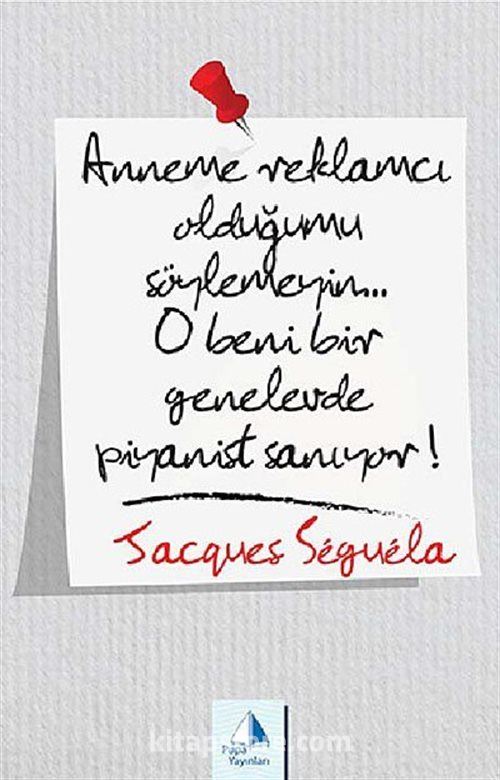 Anneme reklamcı
olduğumu
söylemeyin...
O beni bir
genelevde
piyanist sanıyor!
Jacques Séguéla
Papa
Yayınları